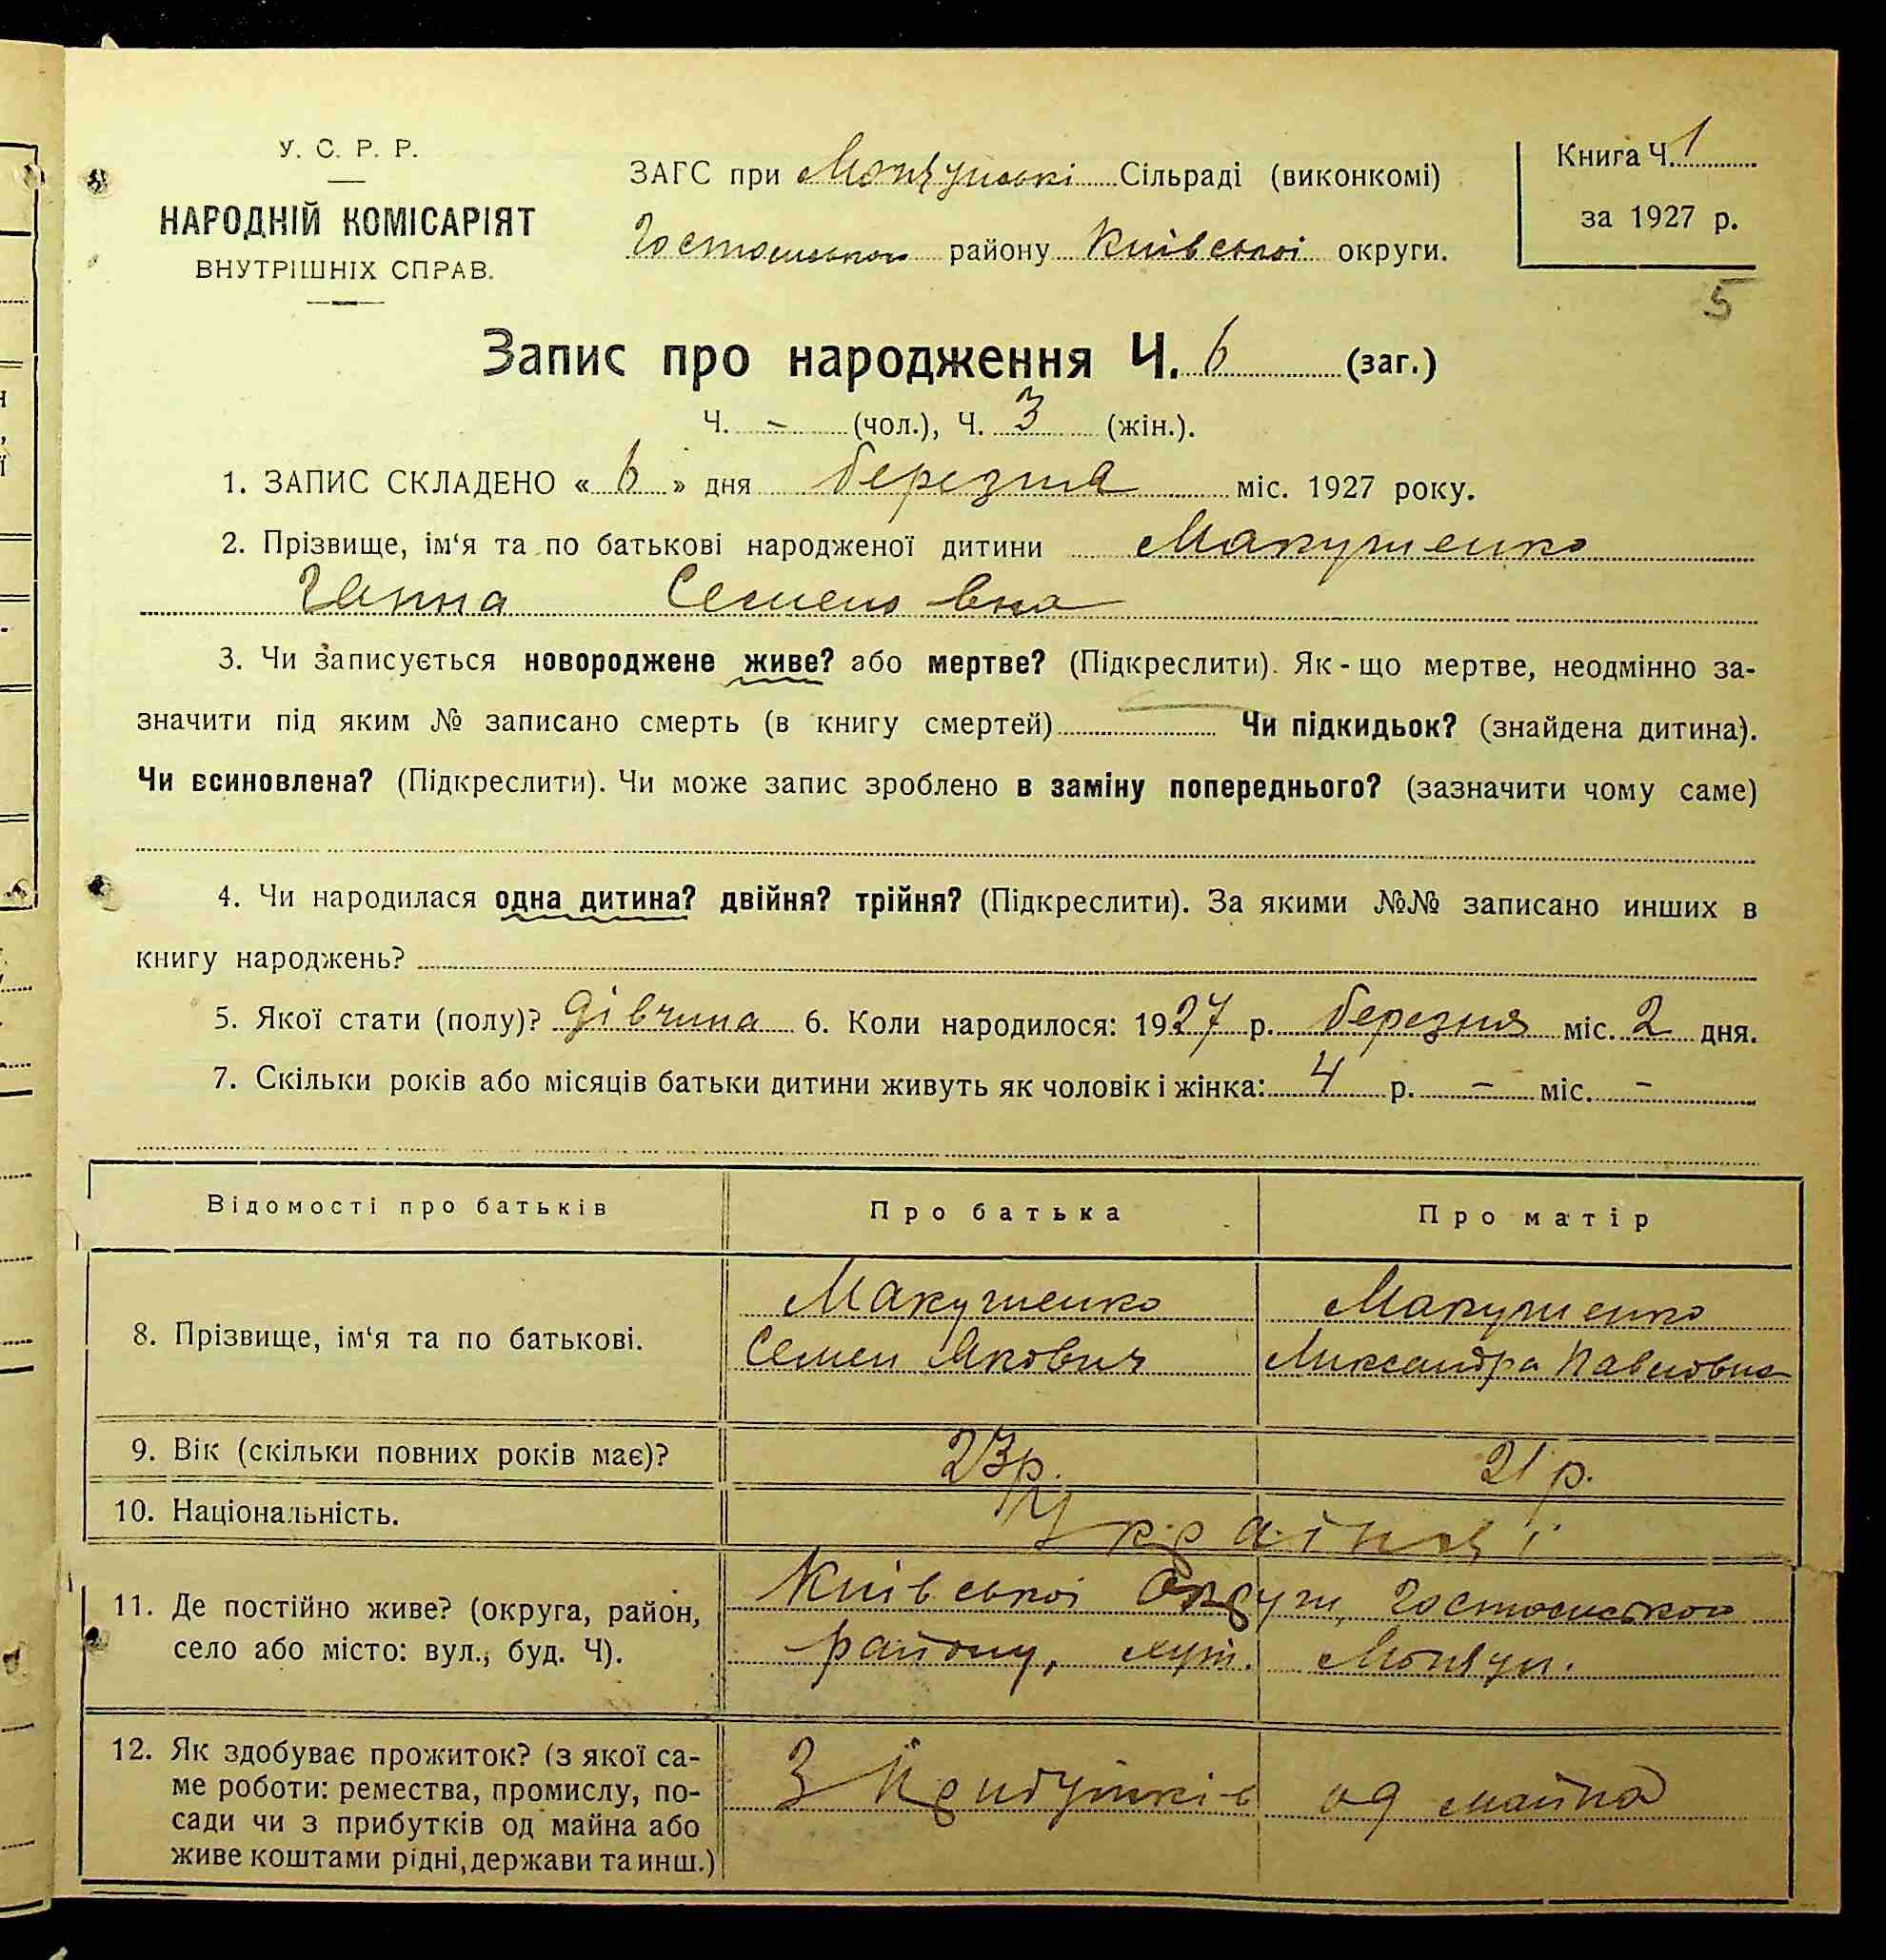 У. С. Р. Р.
НАРОДНІЙ КОМІСАРІЯТ
ВНУТРІШНІХ СПРАВ.
ЗАГС при Сільраді (виконкомі)
району Київської округи.
Книга Ч. 1
за 1927 р.
5
Запис про народження Ч. 6 (заг.)
Ч. - (чол.), Ч. 3 (жін.).
1. ЗАПИС СКЛАДЕНО « 6 » дня березня міс. 1927 року.
2. Прізвище, ім‘я та по батькові народженої дитини
Ганна Семеновна
3. Чи записується новороджене живе? або мертве? (Підкреслити). Як-що мертве, неодмінно за-
значити під яким № записано смерть (в книгу смертей) Чи підкидьок? (знайдена дитина).
Чи всиновлена? (Підкреслити). Чи може запис зроблено в заміну попереднього? (зазначити чому саме)
4. Чи народилася одна дитина? двійня? трійня? (Підкреслити). За якими №№ записано инших в
книгу народжень?
5. Якої стати (полу)? дівчина 6. Коли народилося: 1927 р. березня міс. 2 дня.
7. Скільки років або місяців батьки дитини живуть як чоловік і жінка: 4 р. - міс. -
Відомості про батьків
Про батька
Про матір
8. Прізвище, ім‘я та по батькові.
Семен Якович
Павловна
9. Вік (скільки повних років має)?
23 р.
21 р.
10. Національність.
Українці
11. Де постійно живе? (округа, район,
село або місто: вул., буд. Ч).
Київської Округи,
району, хут.
12. Як здобуває прожиток? (з якої са-
ме роботи: ремества, промислу, по-
сади чи з прибутків од майна або
живе коштами рідні, держави та инш.)
З Прибутків од майна